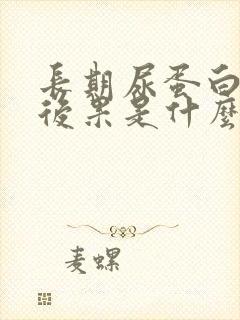 長期尿蛋白
後果是什麼
麦螺